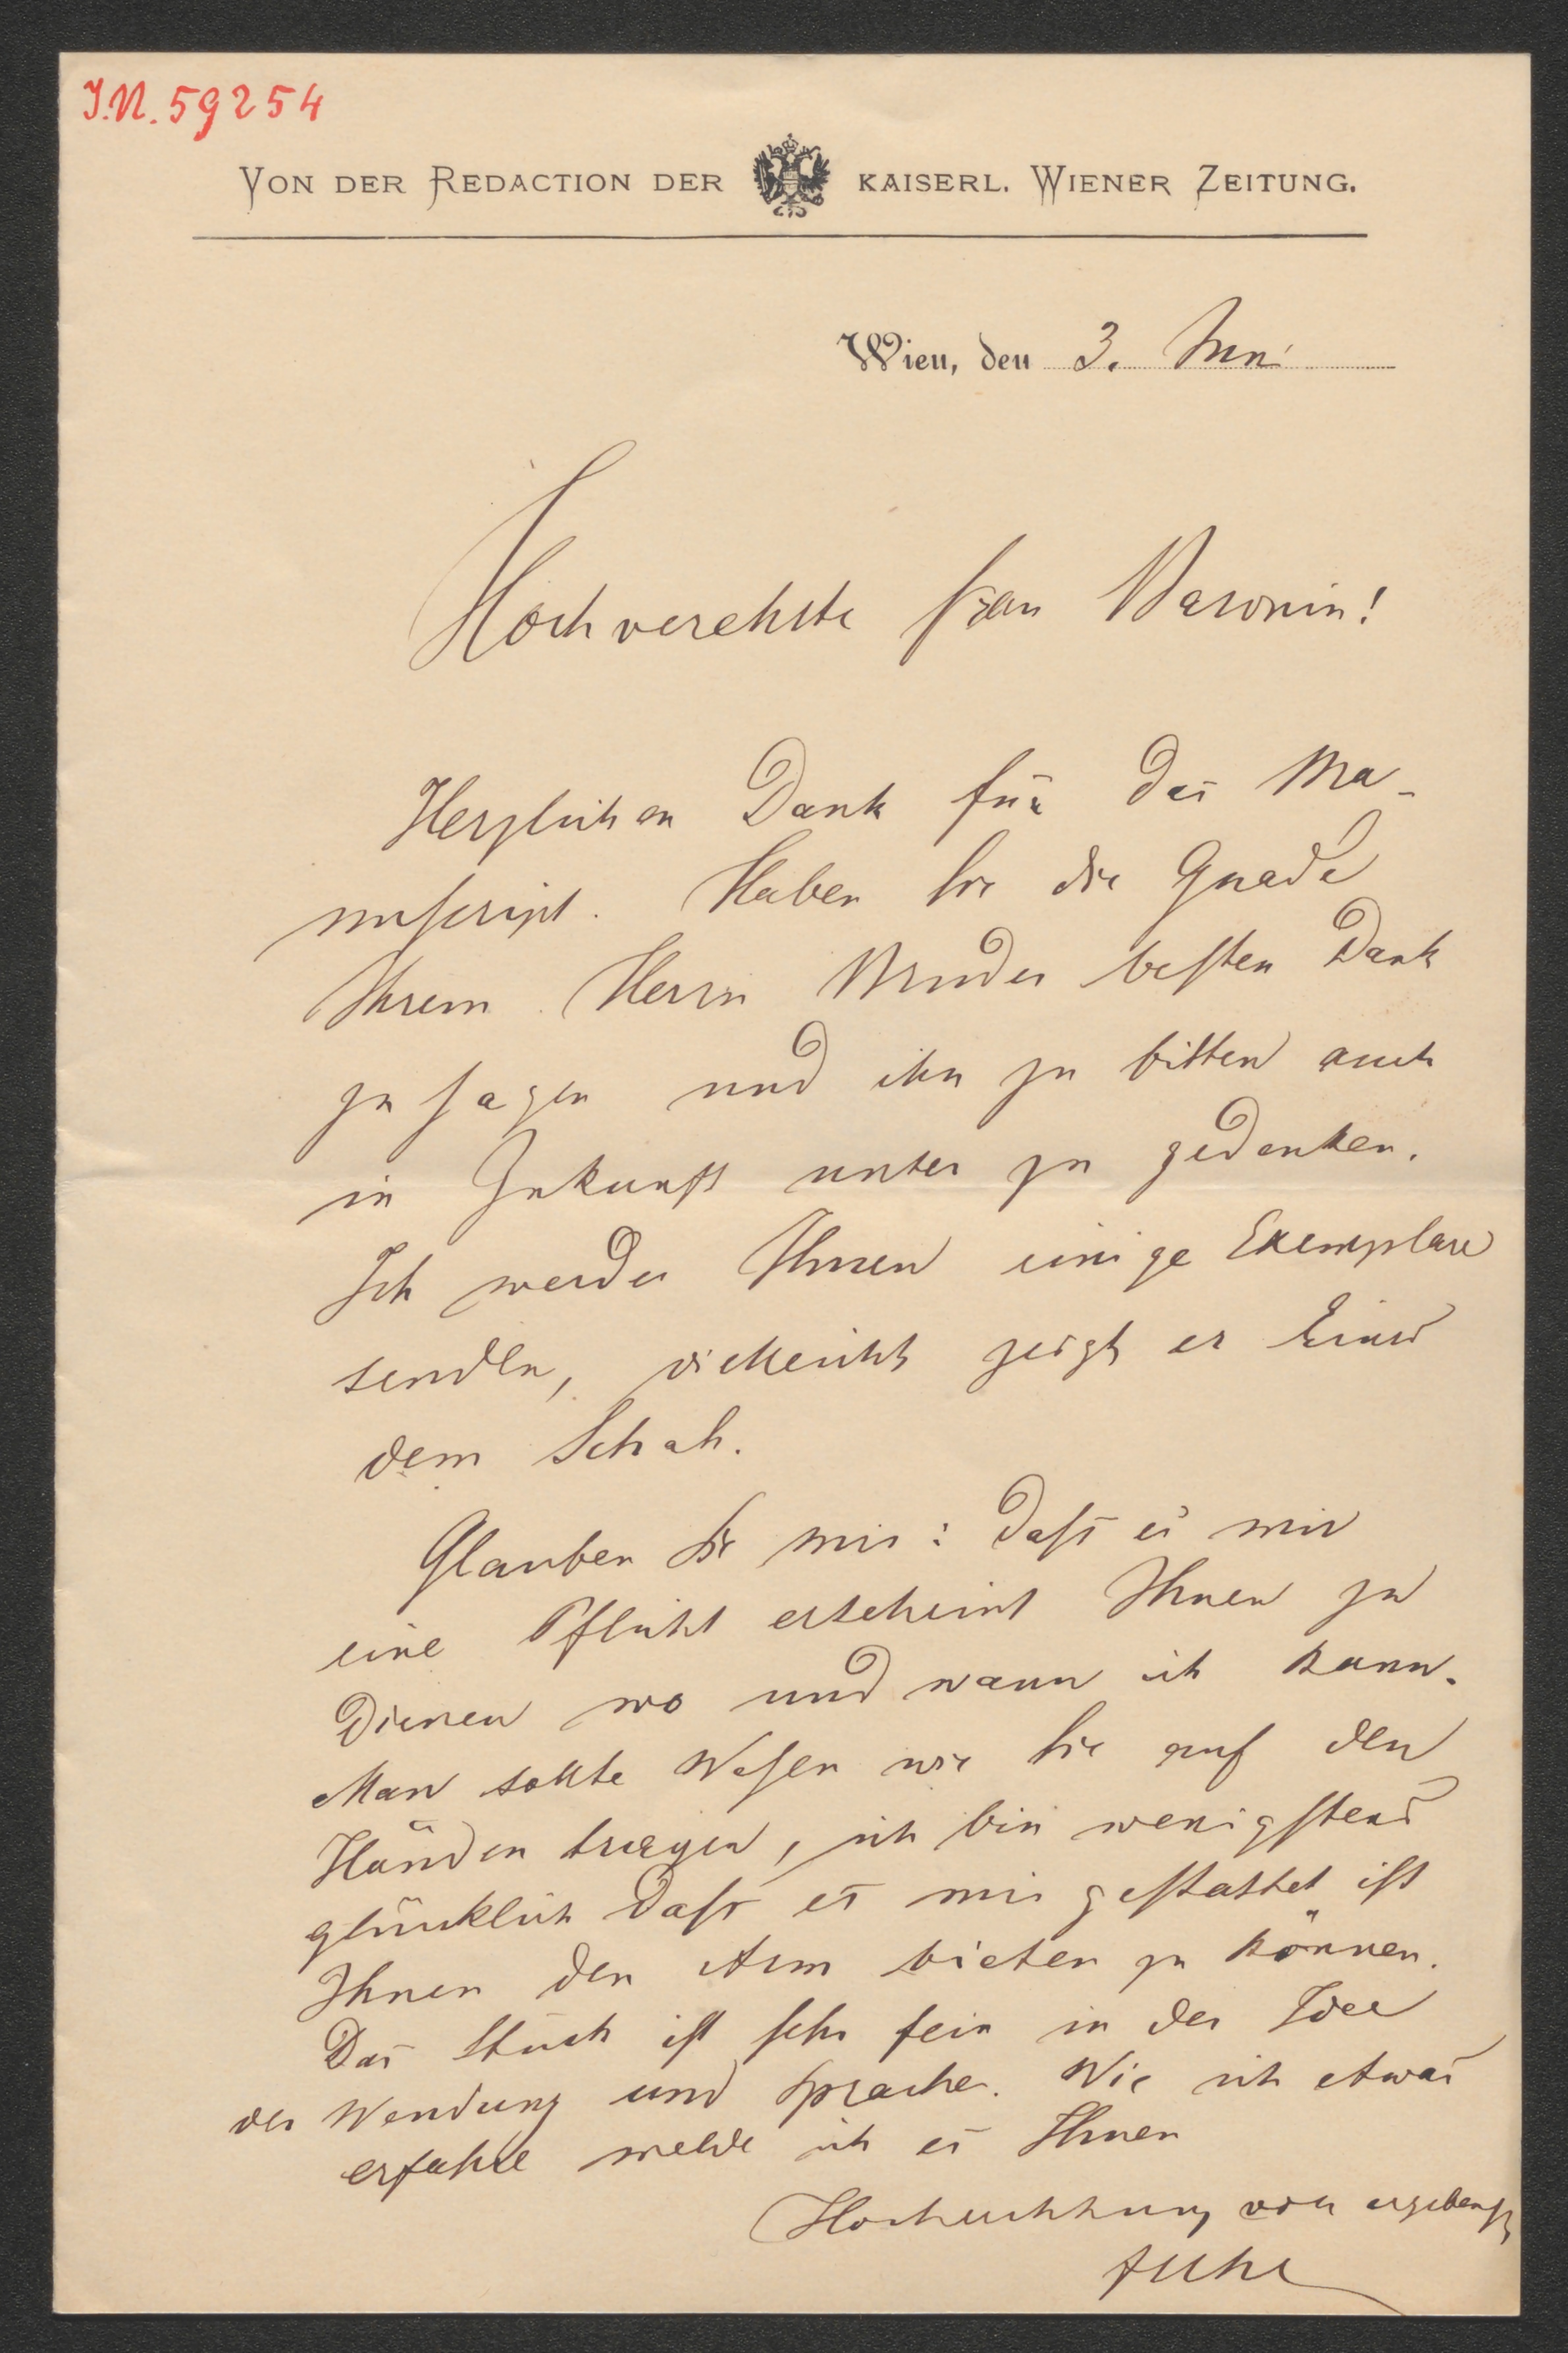 J.N. 59254
VON DER REDACTION DER KAISERL. WIENER ZEITUNG.
Wien, den 3. Juni
Hochverehrte Frau Baronin!
Herzlichen Dank für das Ma-
nuscript. Haben Sie die Gnade
Ihrem Herrn Bruder besten Dank
zu sagen und ihn zu bitten auch
in Zukunft unser zu gedenken.
Ich werde Ihnen einige Exemplare
senden, vielleicht zeigt er Eines
dem Schah.
Glauben Sie mir: daß es mir
eine Pflicht erscheint Ihnen zu
dienen wo und wann ich kann.
Man sollte Wesen wie Sie auf den
Händen tragen, ich bin wenigstens
glücklich daß es mir gestattet ist
Ihnen den Arm bieten zu können.
Das Stück ist sehr fein in der Idee
der Wendung und Sprache. Wie ich etwas
erfahre melde ich es Ihnen
Hochachtungsvoll ergebenst